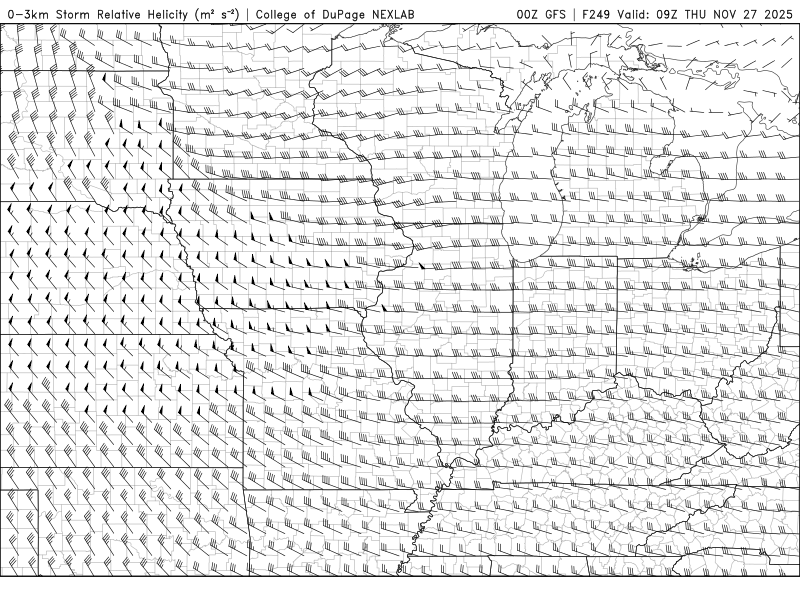 0-3km Storm Relative Helicity (m² s⁻²) | College of DuPage NEXLAB 00Z GFS | F249 Valid: 09Z THU NOV 27 2025